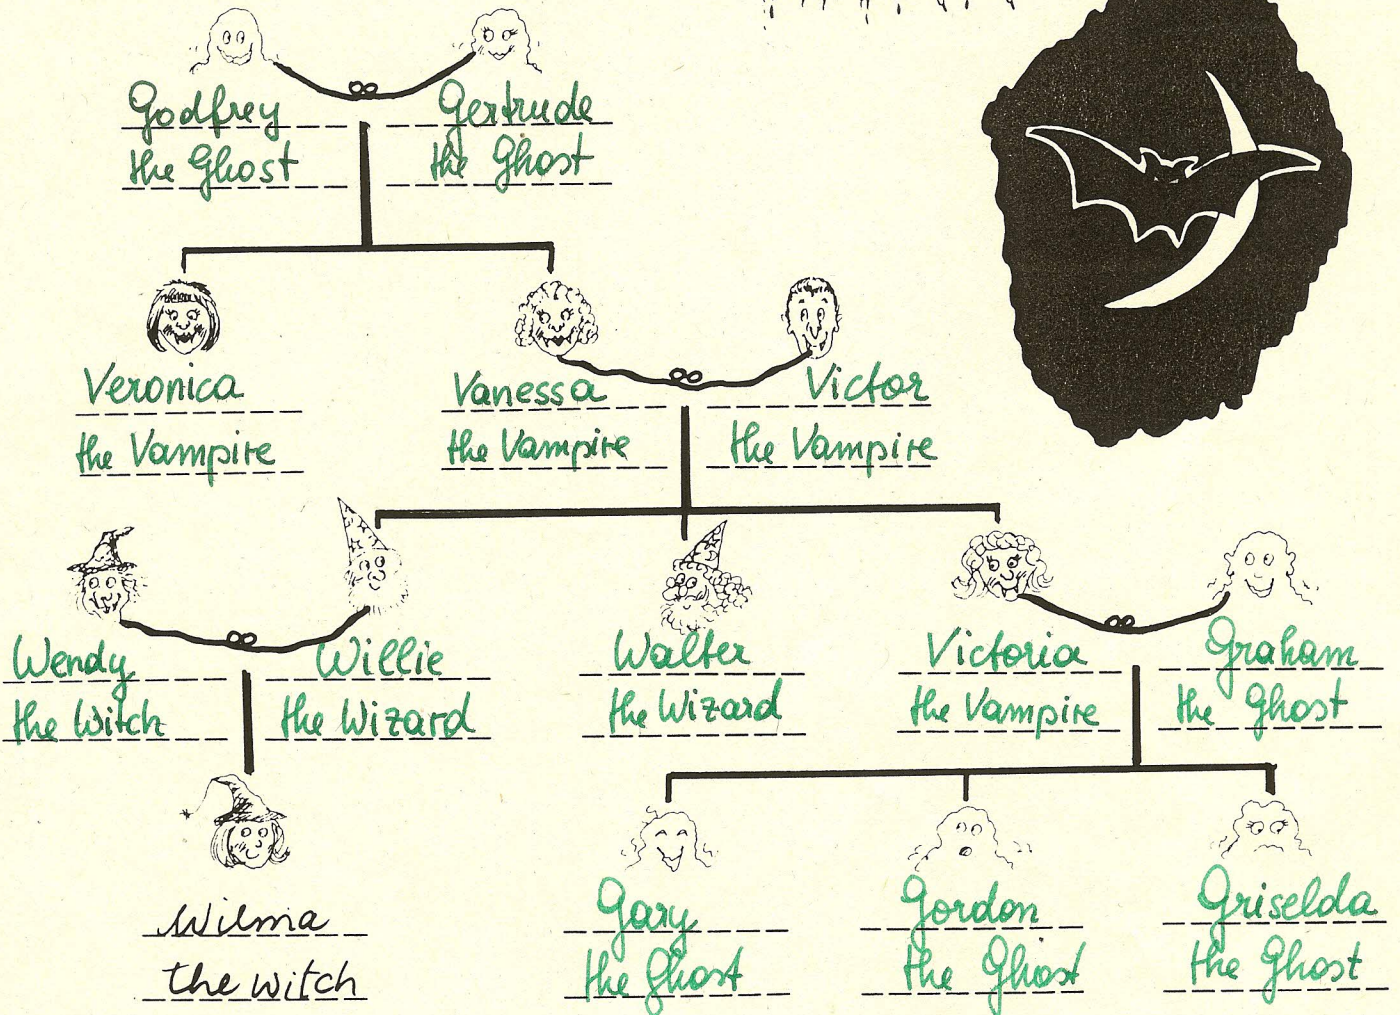 Godfrey
the Ghost
Gertrude
the Ghost
Veronica
the Vampire
Vanessa
the Vampire
Victor
the Vampire
Wendy
the Witch
Willie
the Wizard
Walter
the Wizard
Victoria
the Vampire
Graham
the Ghost
Wilma
the witch
Gary
the Ghost
Gordon
the Ghost
Griselda
the Ghost